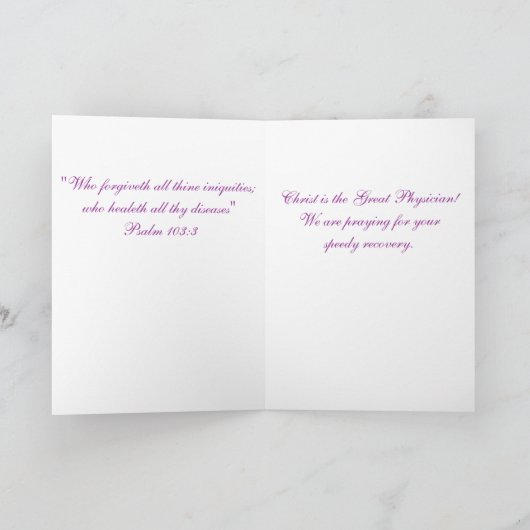 "Who forgiveth all thine iniquities;
who healeth all thy diseases"
Psalm 103:3
Christ is the Great Physician!
We are praying for your
speedy recovery.